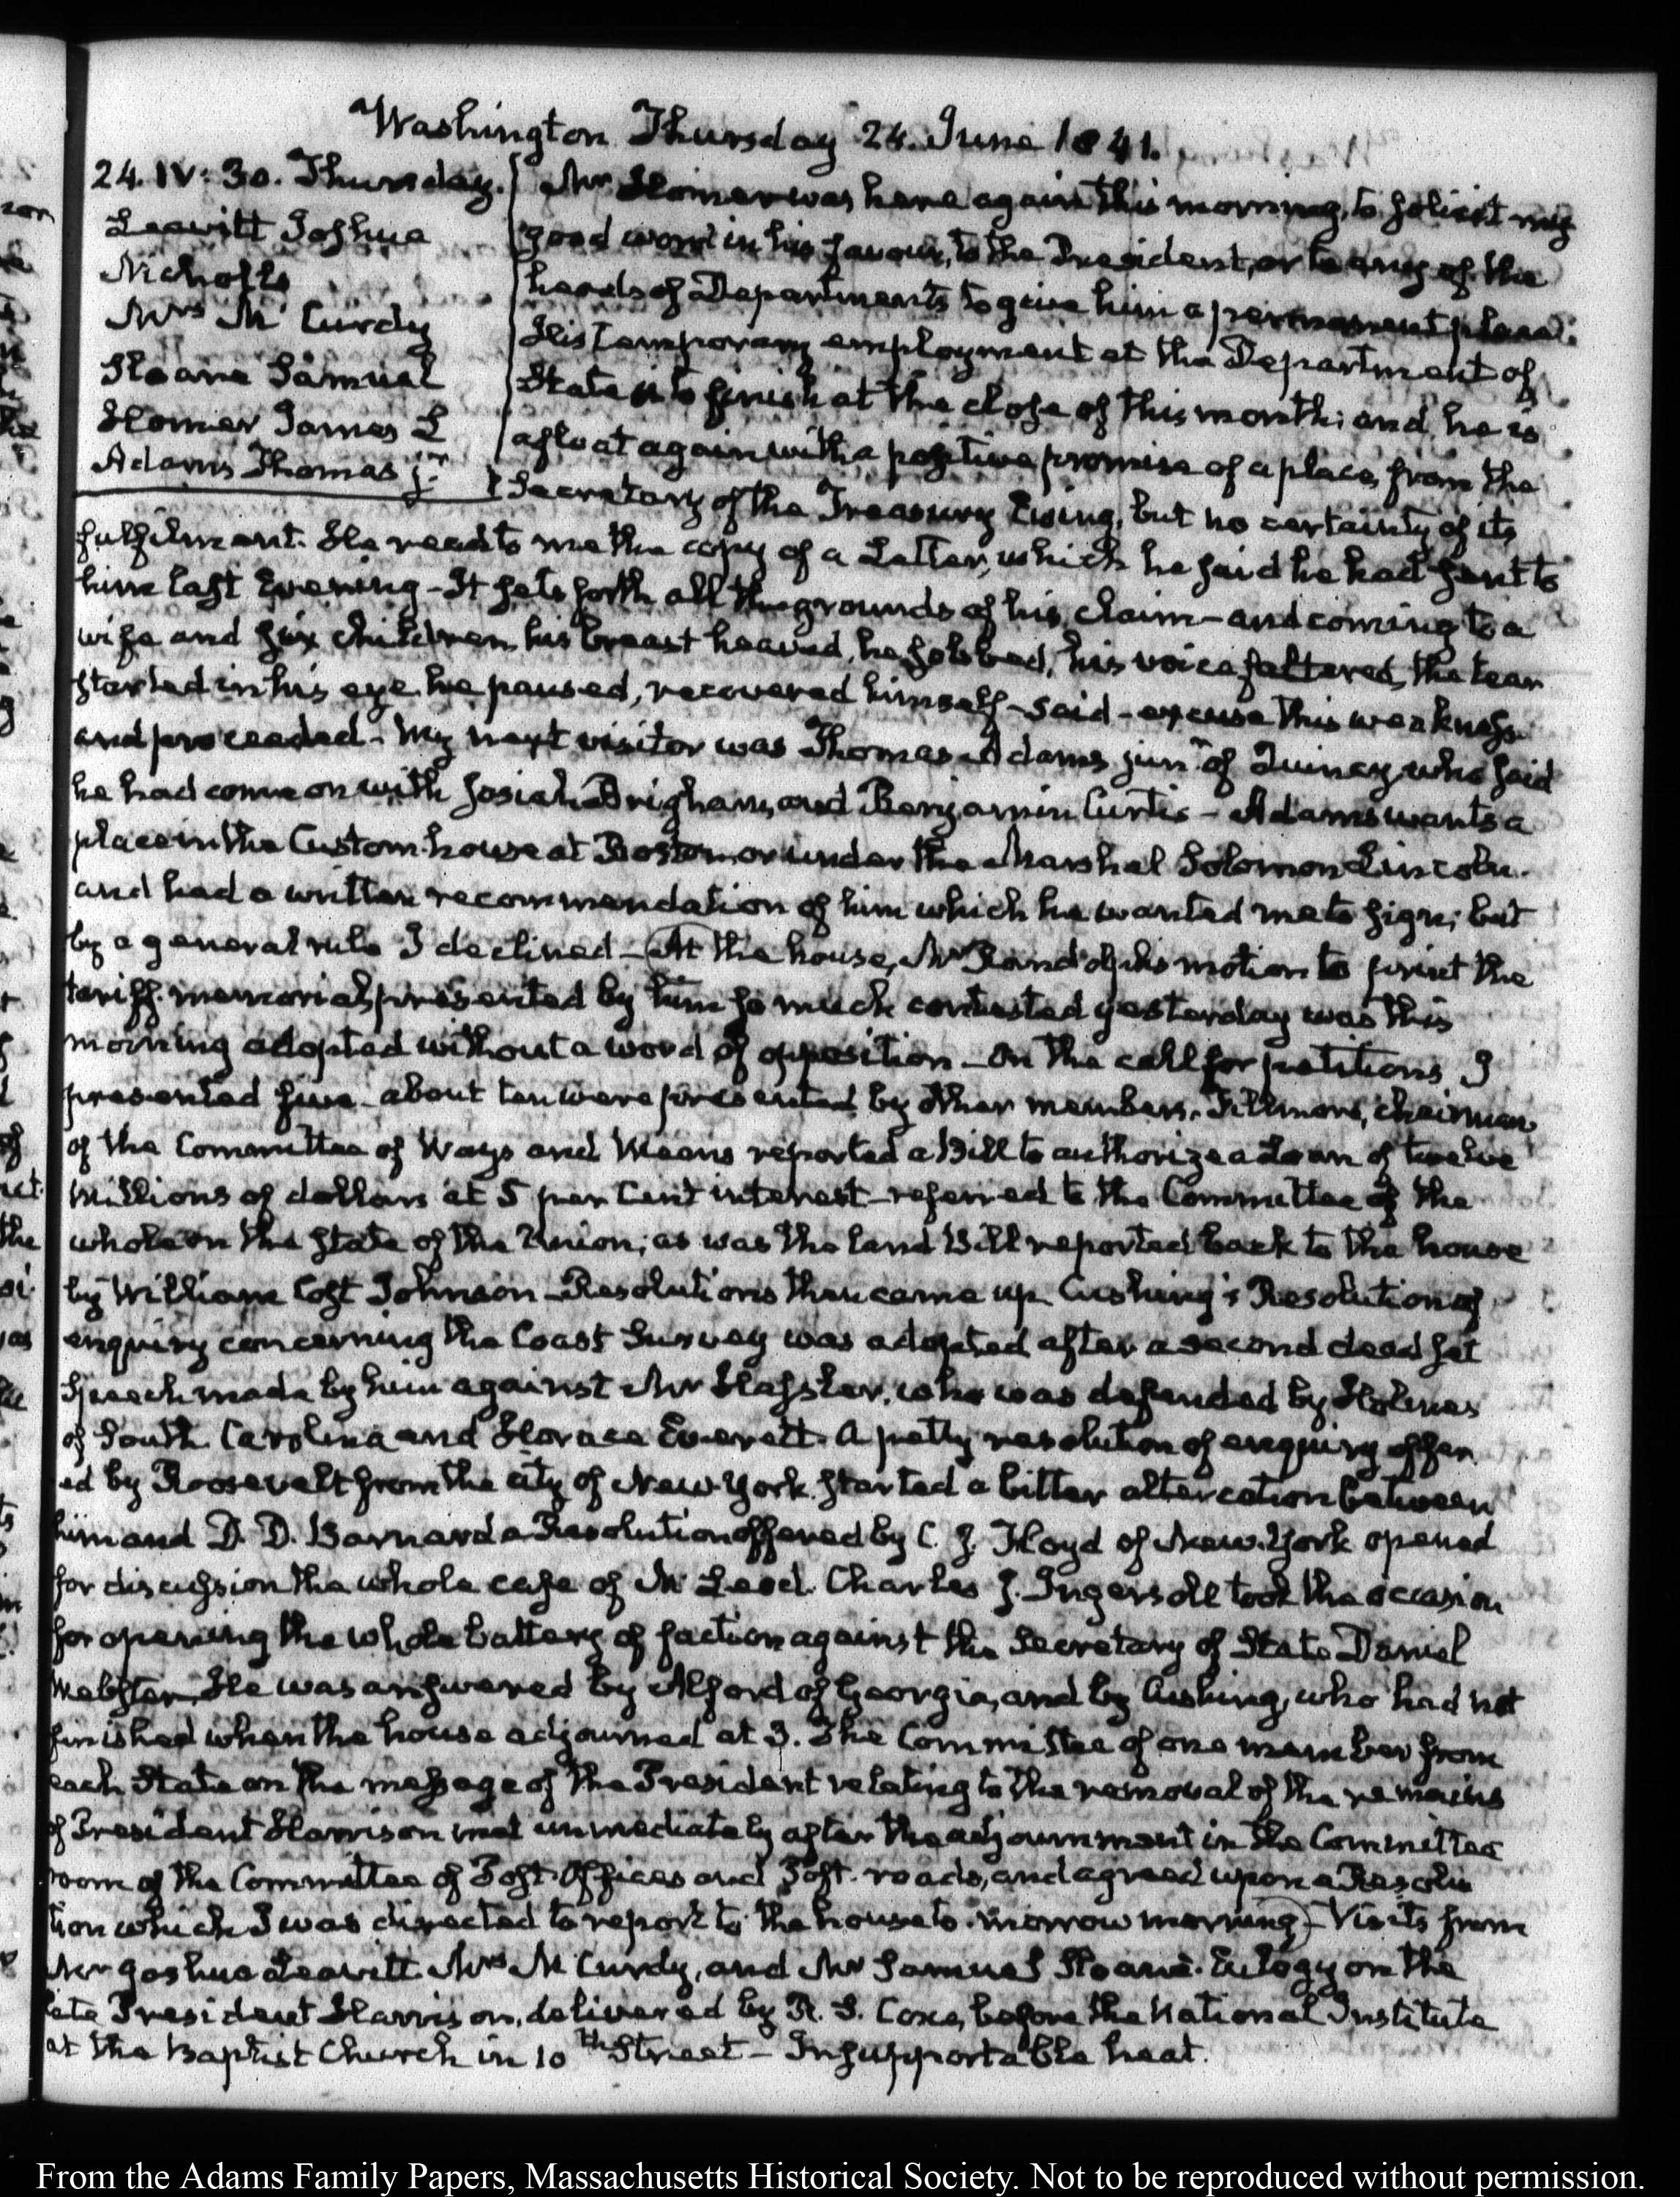 Washington Thursday 24. June 1841.
24. IV: 30. Thursday.
Leavitt Joshua
Nicholls
Mrs McCurdy
Sloane Samuel
Homer James L
Adams Thomas jr.
Mr Homer was here again this morning, to solicit my
good word in his favour, to the President, or to any of the
heads of Departments to give him a permanent place.
His temporary employment at the Department of
State is to finish at the close of this month; and he is
afloat again with a positive promise of a place from the
Secretary of the Treasury Ewing, but no certainty of its
fulfilment. He read to me the copy of a Letter, which he said he had sent to
him last Evening - It sets forth all the grounds of his claim - and coming to a
wife and six children, his breast heaved, he sobbed, his voice faltered, the tear
started in his eye he paused, recovered himself - said - excuse this weakness
and proceeded - My next visitor was Thomas Adams junr. of Quincy, who said
he had come on with Josiah Brigham, and Benjamin Curtis - Adams wants a
place in the Custom house at Boston or under the Marshal Solomon Lincoln.
and had a written recommendation of him which he wanted me to sign; but
by a general rule I declined - At the house, Mr Randolph's motion to print the
tariff memorial, presented by him so much contested yesterday was this
morning adopted without a word of opposition - On the call for petitions I
presented five - about ten were presented by other members. Fillmore, chairman
of the Committee of Ways and Means reported a Bill to authorize a Loan of twelve
Millions of dollars at 5 per Cent interest - referred to the Committee of the
whole on the state of the Union; as was the land Bill reported back to the house
by William Cost Johnson - Resolutions then came up. Cushing's Resolution of
enquiry concerning the Coast Survey was adopted after a second dead set
speech made by him against Mr Hassler, who was defended by Holmes
of South Carolina and Horace Everett. A petty resolution of enquiry offer
ed by Roosevelt from the city of New York started a bitter altercation between
him and D. D. Barnard a Resolution offered by C. J. Floyd of New-York opened
for discussion the whole case of McLeod. Charles J. Ingersoll took the occasion
for opening the whole battery of faction against the Secretary of State Daniel
Webster. He was answered by Alford of Georgia, and by Cushing, who had not
finished when the house adjourned at 3. The Committee of one member from
each State on the message of the President relating to the removal of the remains
of President Harrison met immediately after the adjournment in the Committee
room of the Committee of Post-Offices and Post-roads, and agreed upon a Resolu
tion which I was directed to report to the house to-morrow morning - Visits from
Mr Joshua Leavitt. Mrs McCurdy, and Mr Samuel Sloane. Eulogy on the
late President Harrison, delivered by R. S. Coxe, before the National Institute
at the Baptist Church in 10th Street - Insupportable heat.
From the Adams Family Papers, Massachusetts Historical Society. Not to be reproduced without permission.